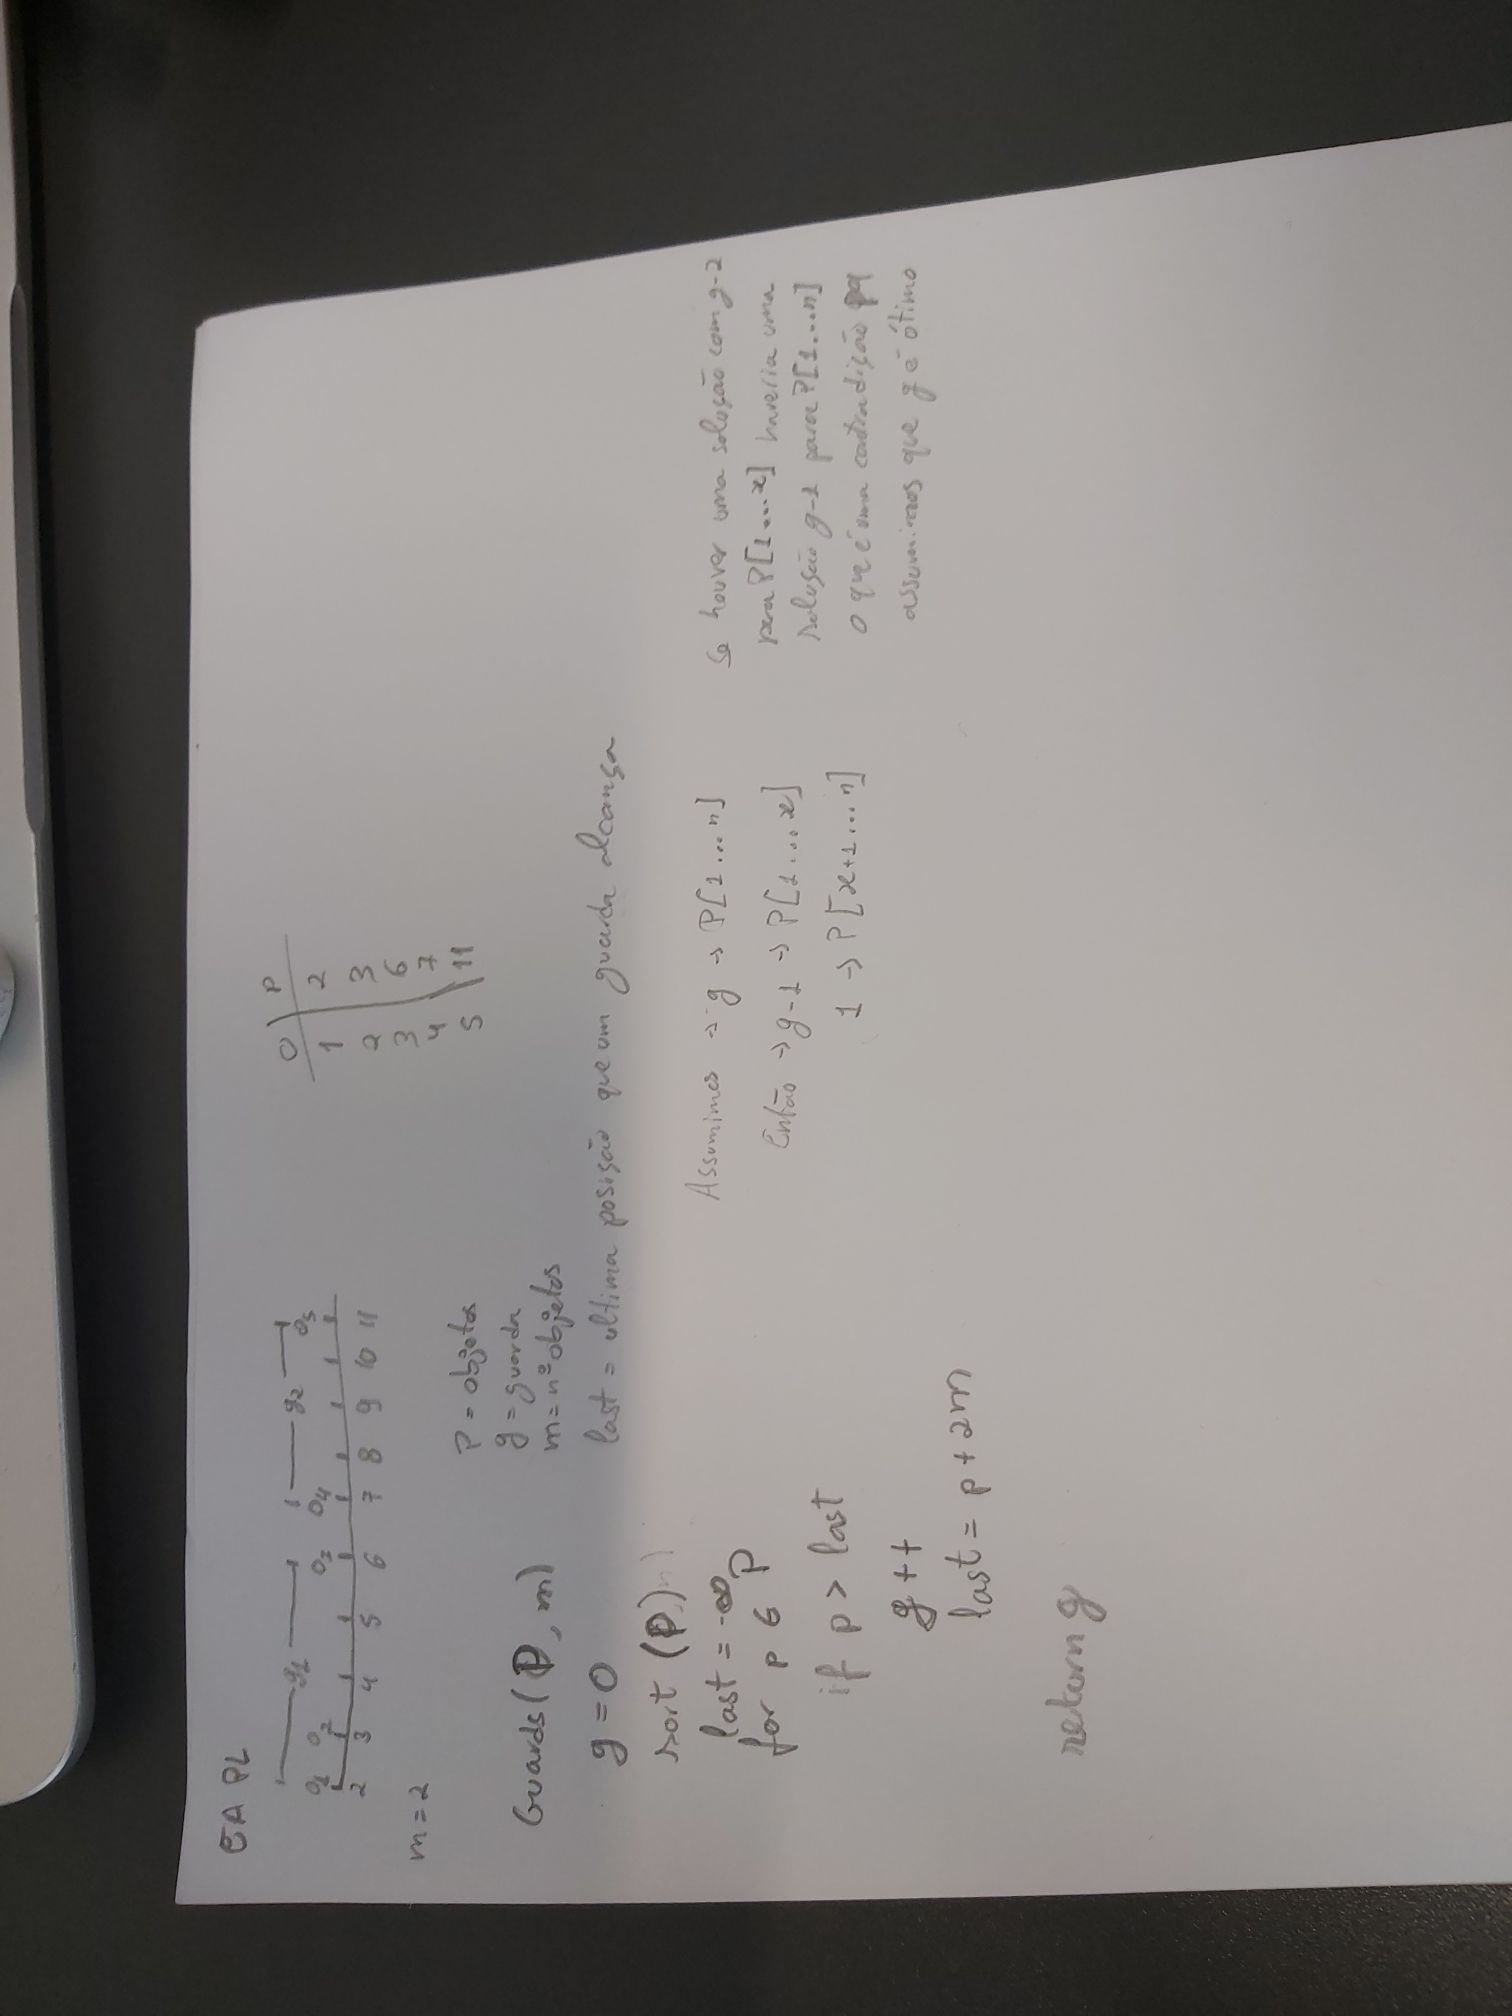 EA PL
g1 g2
O1 O2 O3 O4 O5
2 3 4 5 6 7 8 9 10 11
m=2
O P
1 2
2 3
3 6
4 7
5 11
P = objetos
g = guarda
m = nº objetos
last = ultima posição que um guarda alcança
Guards(P, m)
g = 0
sort (P)
last = -∞
for p ∈ P
if p > last
g ++
last = p + 2m
return g
Assumimos → g → P[1...n]
Então → g-1 → P[1...x]
1 → P[x+1...n]
Se houver uma solução com g-2
para P[1...x] haveria uma
solução g-1 para P[1...n]
o que é uma contradição pq
assumimos que g é ótimo